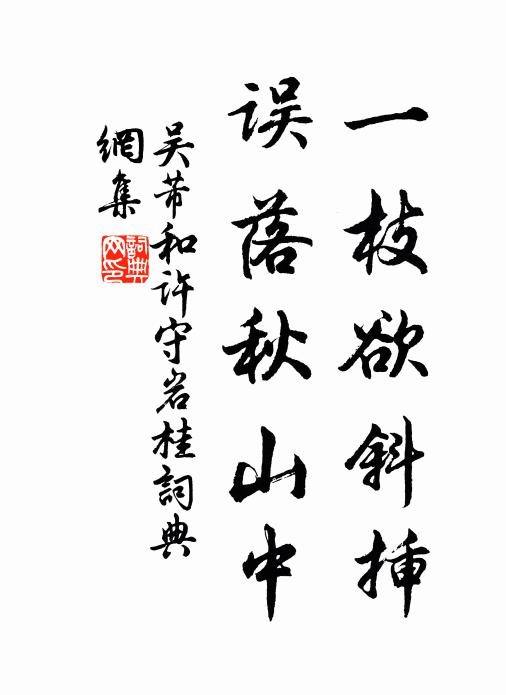 一枝欲斜挿
误落秋山中
吴芾和许守岩桂詞典
網集
詞典
网印